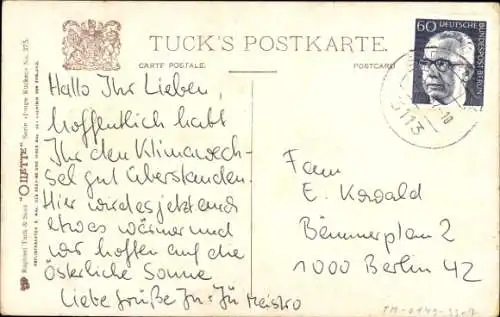 TUCK'S POSTKARTE.
CARTE POSTALE.
POSTCARD
60 DEUTSCHE BUNDESPOST BERLIN
Raphael Tuck & Sons "OILETTE" Serie »Junge Küken« No. 375.
Hallo Ihr Lieben,
hoffentlich habt
Ihr den Klimawech-
sel gut überstanden.
Hier wird es jetzt auch
etwas wärmer und
wir hoffen auf die
Österliche Sonne
Liebe Grüße
Fam
E. Kowald
Bömmerplan 2
1000 Berlin 42